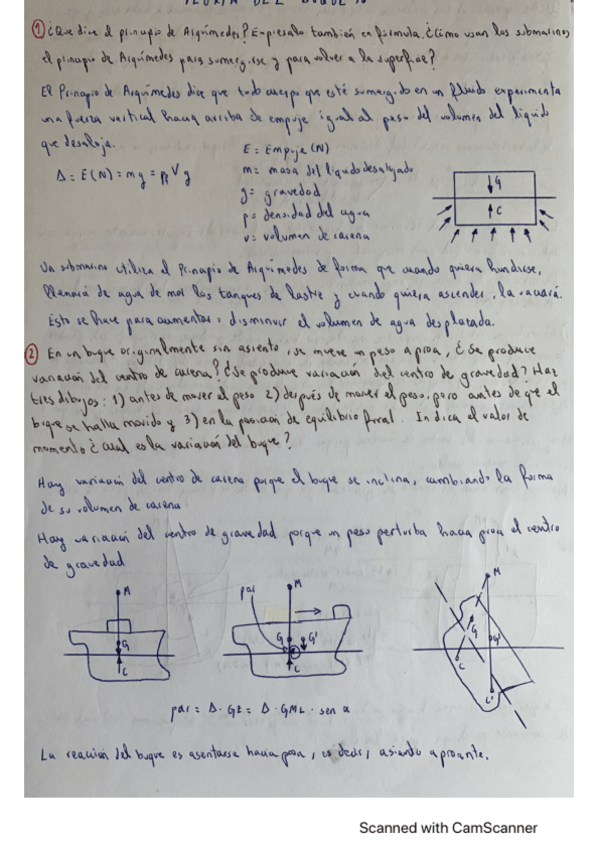 TEORIA DEL BUQUE
① ¿Que dice el principio de Arquímedes? Expresalo también en formula. ¿Cómo usan los submarinos
el principio de Arquímedes para sumergirse y para volver a la superficie?
El Principio de Arquímedes dice que todo cuerpo que esté sumergido en un fluido experimenta
una fuerza vertical hacia arriba de empuje igual al peso del volumen del líquido
que desaloja.
E = Empuje (N)
Δ = E(N) = mg = ρ V g
m = masa del liquido desalojado
g = gravedad
ρ = densidad del agua
v = volumen de carena
G
C
Un submarino utiliza el Principio de Arquímedes de forma que cuando quiera hundirse,
llenará de agua de mar los tanques de lastre y cuando quiera ascender, la vaciará.
Esto se hace para aumentar o disminuir el volumen de agua desplazada.
② En un buque originalmente sin asiento, se mueve un peso a proa, ¿Se produce
variación del centro de carena? ¿Se produce variación del centro de gravedad? Haz
tres dibujos: 1) antes de mover el peso 2) después de mover el peso, pero antes de que el
buque se halla movido y 3) en la posición de equilibrio final. Indica el valor de
momento ¿cual es la variación del buque?
Hay variación del centro de carena porque el buque se inclina, cambiando la forma
de su volumen de carena
Hay variación del centro de gravedad porque un peso perturba hacia proa el centro
de gravedad
M
G
C
par
M
G G'
C
M
G
C
C'
par = Δ · GZ = Δ · GML · sen α
La reacción del buque es asentarse hacia proa, es decir, asiento aproante.
Scanned with CamScanner